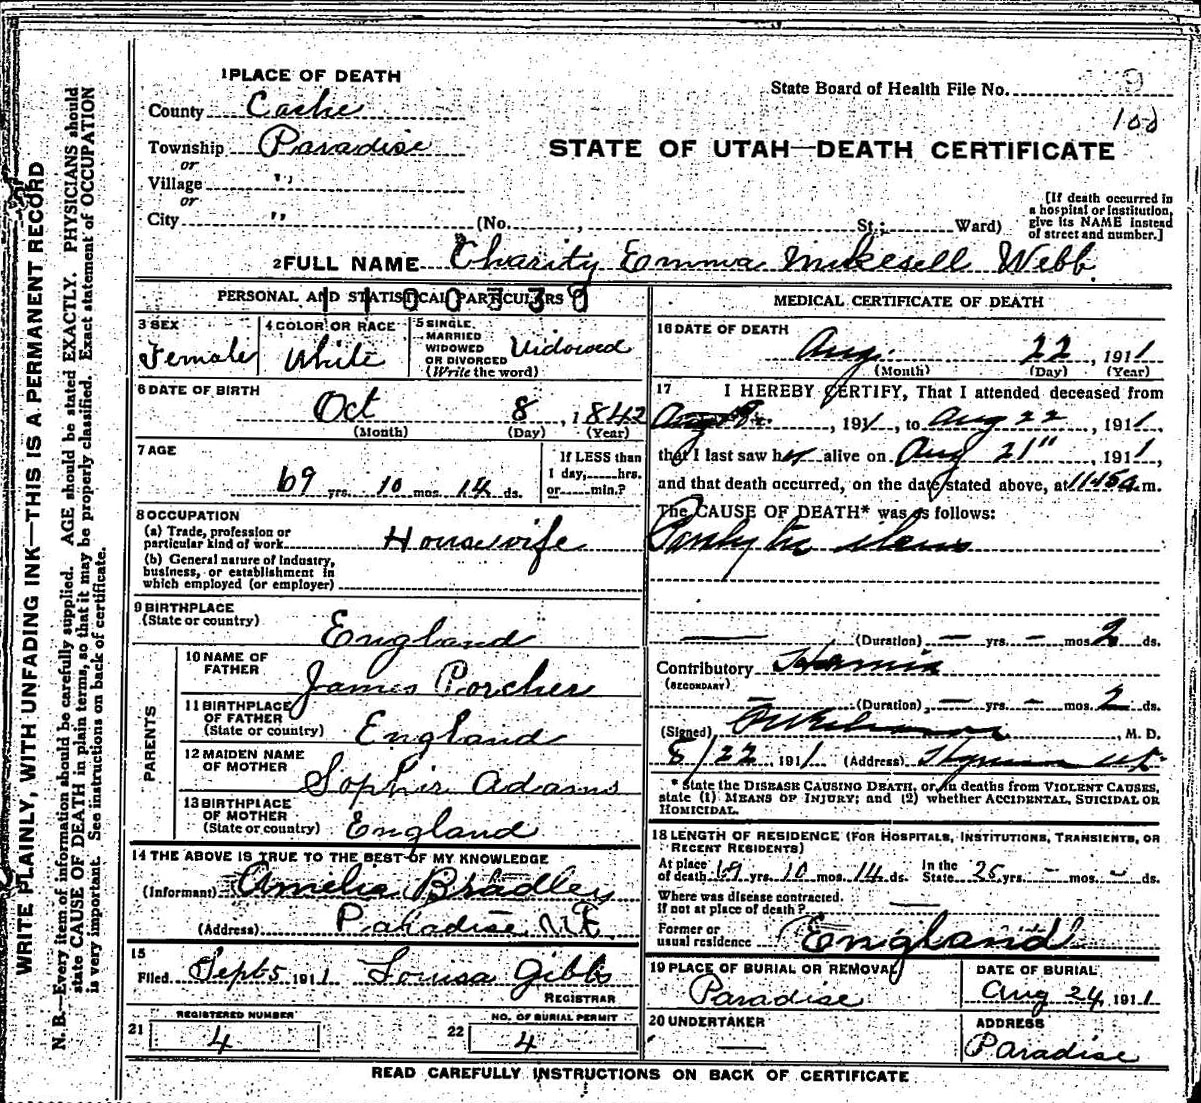 WRITE PLAINLY, WITH UNFADING INK—THIS IS A PERMANENT RECORD
N. B.—Every item of information should be carefully supplied. AGE should be stated EXACTLY. PHYSICIANS should
state CAUSE OF DEATH in plain terms, so that it may be properly classified. Exact statement of OCCUPATION
is very important. See instructions on back of certificate.
1 PLACE OF DEATH
State Board of Health File No.
County Cache
Township Paradise
STATE OF UTAH—DEATH CERTIFICATE
or
Village "
or
City " (No. , St.; Ward)
[If death occurred in
a hospital or institution,
give its NAME instead
of street and number.]
2 FULL NAME Charity Emma Mikesell Webb
PERSONAL AND STATISTICAL PARTICULARS
3 SEX Female
4 COLOR OR RACE White
5 SINGLE, MARRIED WIDOWED OR DIVORCED (Write the word) Widowed
6 DATE OF BIRTH
Oct 8, 1842
(Month) (Day) (Year)
7 AGE
69 yrs. 10 mos. 14 ds.
If LESS than
1 day, hrs.
or min.?
8 OCCUPATION
(a) Trade, profession or
particular kind of work Housewife
(b) General nature of industry,
business, or establishment in
which employed (or employer)
9 BIRTHPLACE
(State or country) England
PARENTS
10 NAME OF
FATHER James Porcher
11 BIRTHPLACE
OF FATHER
(State or country) England
12 MAIDEN NAME
OF MOTHER Sophir Adams
13 BIRTHPLACE
OF MOTHER
(State or country) England
14 THE ABOVE IS TRUE TO THE BEST OF MY KNOWLEDGE
(Informant) Amelia Bradley
(Address) Paradise
15
Filed Sept 5 1911 Louisa Gibbs
REGISTRAR
21 REGISTERED NUMBER 4
22 NO. OF BURIAL PERMIT 4
MEDICAL CERTIFICATE OF DEATH
16 DATE OF DEATH
Aug. 22, 1911
(Month) (Day) (Year)
17 I HEREBY CERTIFY, That I attended deceased from
, 1911, to Aug 22, 1911,
that I last saw her alive on Aug 21", 1911,
and that death occurred, on the date stated above, at 1145a m.
The CAUSE OF DEATH* was as follows:
(Duration) — yrs. — mos. 2 ds.
Contributory
(SECONDARY)
(Duration) — yrs. — mos. 2 ds.
(Signed) , M. D.
8/22, 1911 (Address) Hyrum Ut
* State the DISEASE CAUSING DEATH, or, in deaths from VIOLENT CAUSES,
state (1) MEANS OF INJURY; and (2) whether ACCIDENTAL, SUICIDAL OR
HOMICIDAL.
18 LENGTH OF RESIDENCE (FOR HOSPITALS, INSTITUTIONS, TRANSIENTS, OR
RECENT RESIDENTS)
At place
of death 69 yrs. 10 mos. 14 ds. In the
State 25 yrs. — mos. — ds.
Where was disease contracted.
If not at place of death? —
Former or
usual residence England
19 PLACE OF BURIAL OR REMOVAL
Paradise
DATE OF BURIAL
Aug 24, 1911
20 UNDERTAKER
—
ADDRESS
Paradise
READ CAREFULLY INSTRUCTIONS ON BACK OF CERTIFICATE